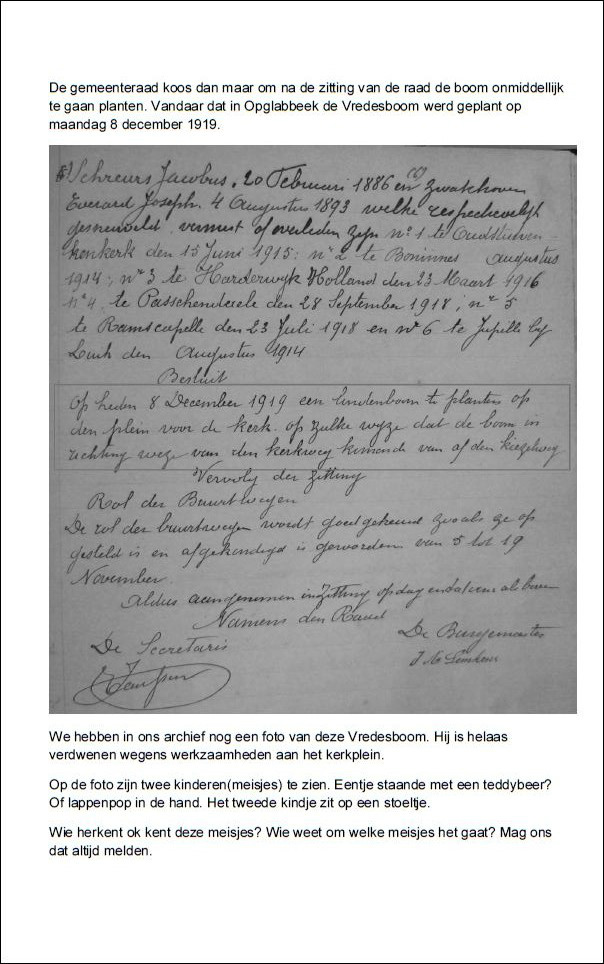 De gemeenteraad koos dan maar om na de zitting van de raad de boom onmiddellijk
te gaan planten. Vandaar dat in Opglabbeek de Vredesboom werd geplant op
maandag 8 december 1919.
Schreurs Jacobus, 20 Februari 1886 en (6) Zwakhoven
Everard Joseph 4 Augustus 1893 welke respectievelijk
gesneuveld vermist of overleden zijn n° 1 te Oudstuiven-
kenkerk den 15 Juni 1915; n° 2 te Boninnes Augustus
1914; n° 3 te Harderwyk Holland den 23 Maart 1916
n° 4 te Passchendaele den 28 September 1918; n° 5
te Ramscapelle den 23 Juli 1918 en n° 6 te Jupille by
Luik den Augustus 1914
Besluit
Op heden 8 December 1919 een lindenboom te planten op
den plein voor de kerk op zulke wyze dat de boom in
richting wege van den kerkweg komende van af den kiezelweg
Vervolg der zitting
Rol der Buurtwegen
De rol der buurtwegen wordt goedgekeurd zooals ze op
gesteld is en afgekondigd is geworden van 5 tot 19
November.
Aldus aangenomen in zitting op dag en datum als boven
Namens den Raad
De Secretaris De Burgemeester
We hebben in ons archief nog een foto van deze Vredesboom. Hij is helaas
verdwenen wegens werkzaamheden aan het kerkplein.
Op de foto zijn twee kinderen(meisjes) te zien. Eentje staande met een teddybeer?
Of lappenpop in de hand. Het tweede kindje zit op een stoeltje.
Wie herkent ok kent deze meisjes? Wie weet om welke meisjes het gaat? Mag ons
dat altijd melden.